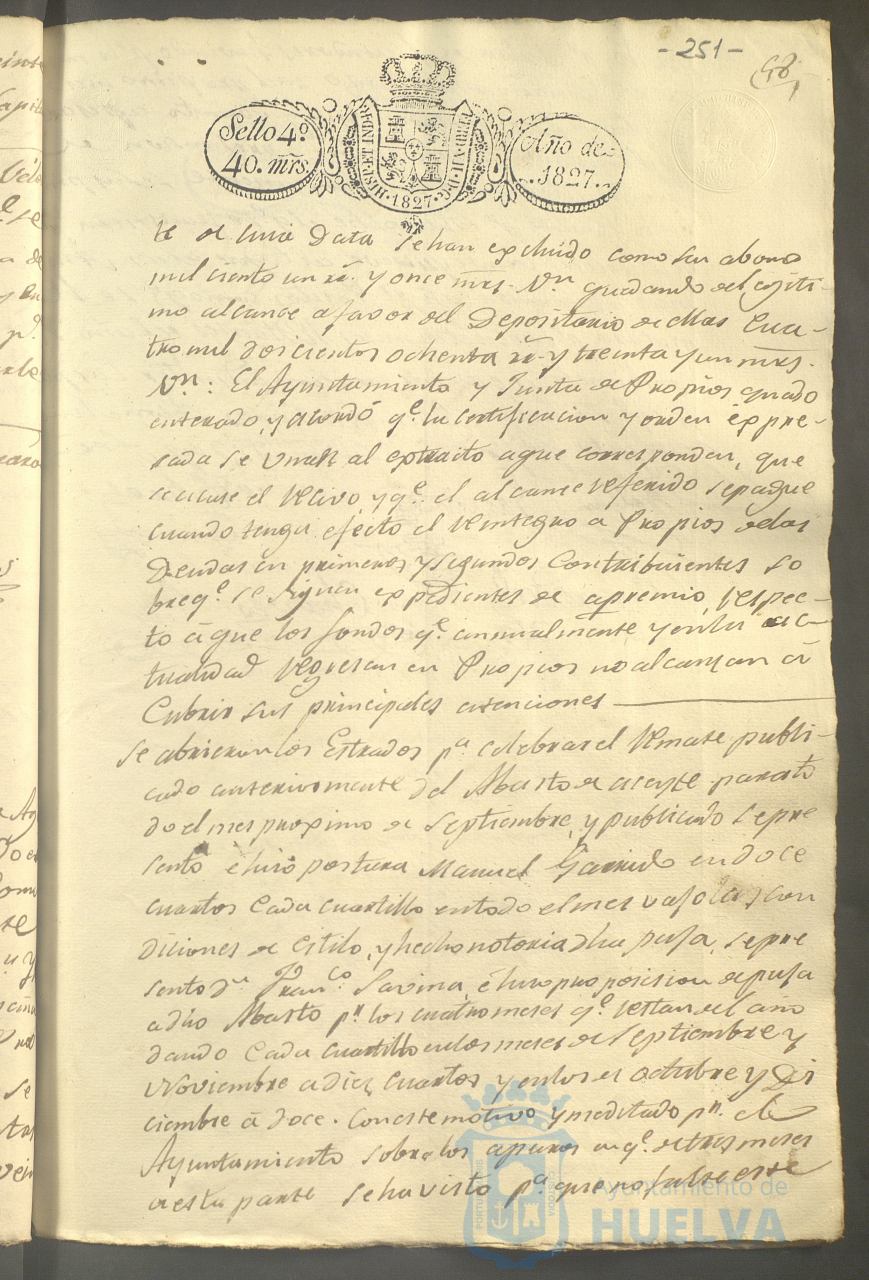 - 251 -
Sello 4º
40. mrs.
HISP. ET IND. R
1827
Año de
1827.
te de cuia Data se han excluido como sin abono
mil ciento un rs. y once mrs. Vn. quedando el lexiti-
mo alcance a favor del Depositario de ellas Cua-
tro mil doscientos ochenta rs. y treinta y un mrs.
Vn: El Ayuntamiento y Junta de Propios quedo
enterado, y acordó qe. la certificacion y orden expre-
sada se unan al extracto a que corresponden, que
se acuse el recivo y qe. el alcance referido se pague
cuando tenga efecto el reintegro a Propios de las
Deudas en primeros y segundos Contribuientes so
bre qe. se siguen expedientes de apremio, respec-
to á que los fondos qe. annualmente y en la ac-
tualidad regresan en Propios no alcanzan á
Cubrir sus principales atenciones
Se abrieron los Estrados pa. celebrar el remate publi-
cado anteriormente del Abasto de aceyte para to
do el mes proximo de Septiembre, y publicado se pre
sentó é hizo postura Manuel Garrido en doce
cuartos cada cuartillo en todo el mes vajo las con
diciones de estilo, y hecho notoria dha puja, se pre
sentó dn. Franco. Savina, é hizo proposicion de puja
a dho Abasto pr. los cuatro meses qe. restan del año
dando cada cuartillo en los meses de Septiembre y
Noviembre a diez cuartos y en los de Octubre y Di
ciembre á doce. Con este motivo y meditado pr. el
Ayuntamiento sobre los apuros en qe. de tres meses
a esta parte se ha visto pa. que no falte este
Ayuntamiento de
HUELVA